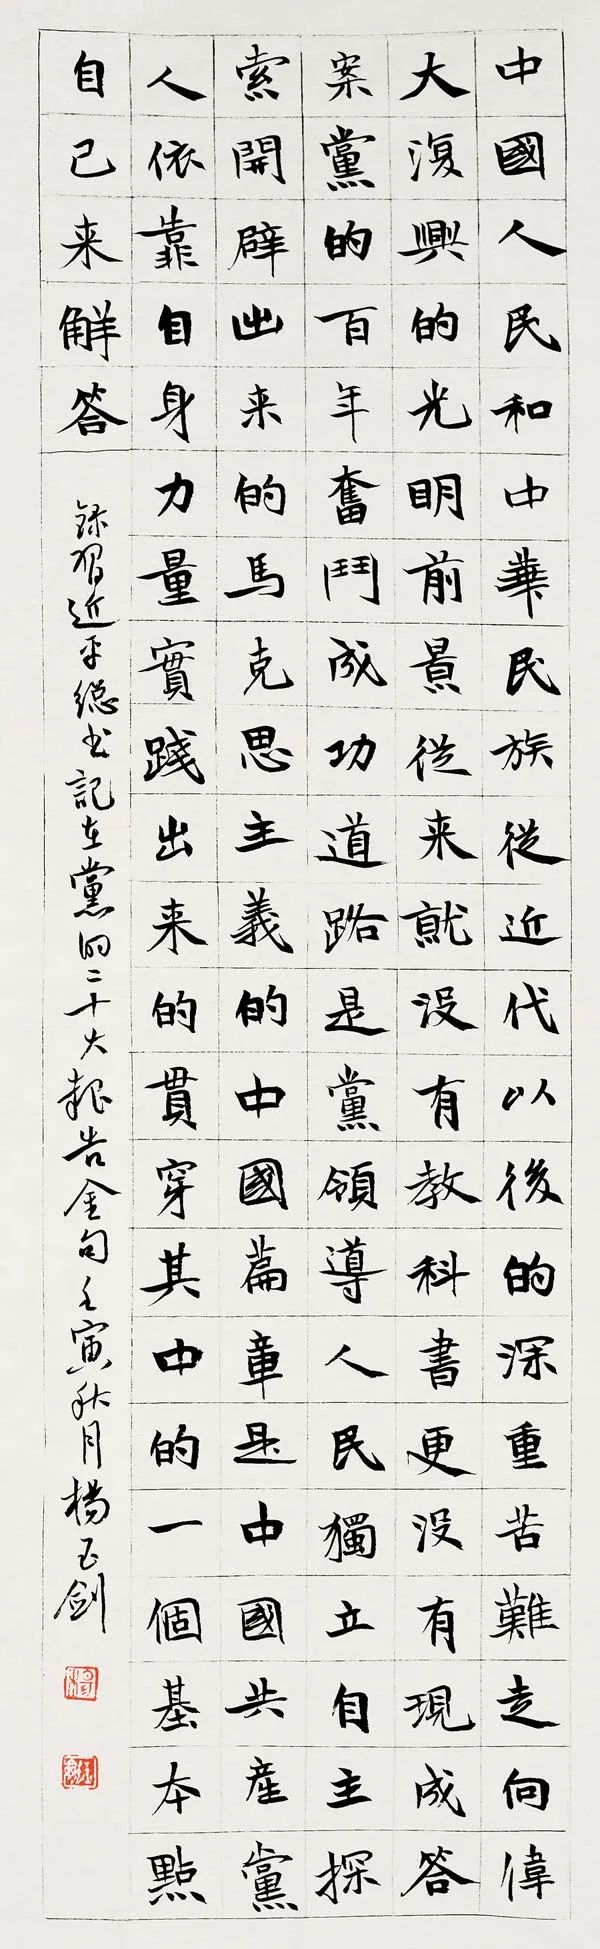 中國人民和中華民族從近代以後的深重苦難走向偉
大復興的光明前景從来就没有教科書更没有現成答
案黨的百年奮鬥成功道路是黨領導人民獨立自主探
索開辟出来的馬克思主義的中國篇章是中國共産黨
人依靠自身力量實踐出来的貫穿其中的一個基本點
自己来解答
録習近平總书記在黨的二十大報告金句壬寅秋月楊玉劍